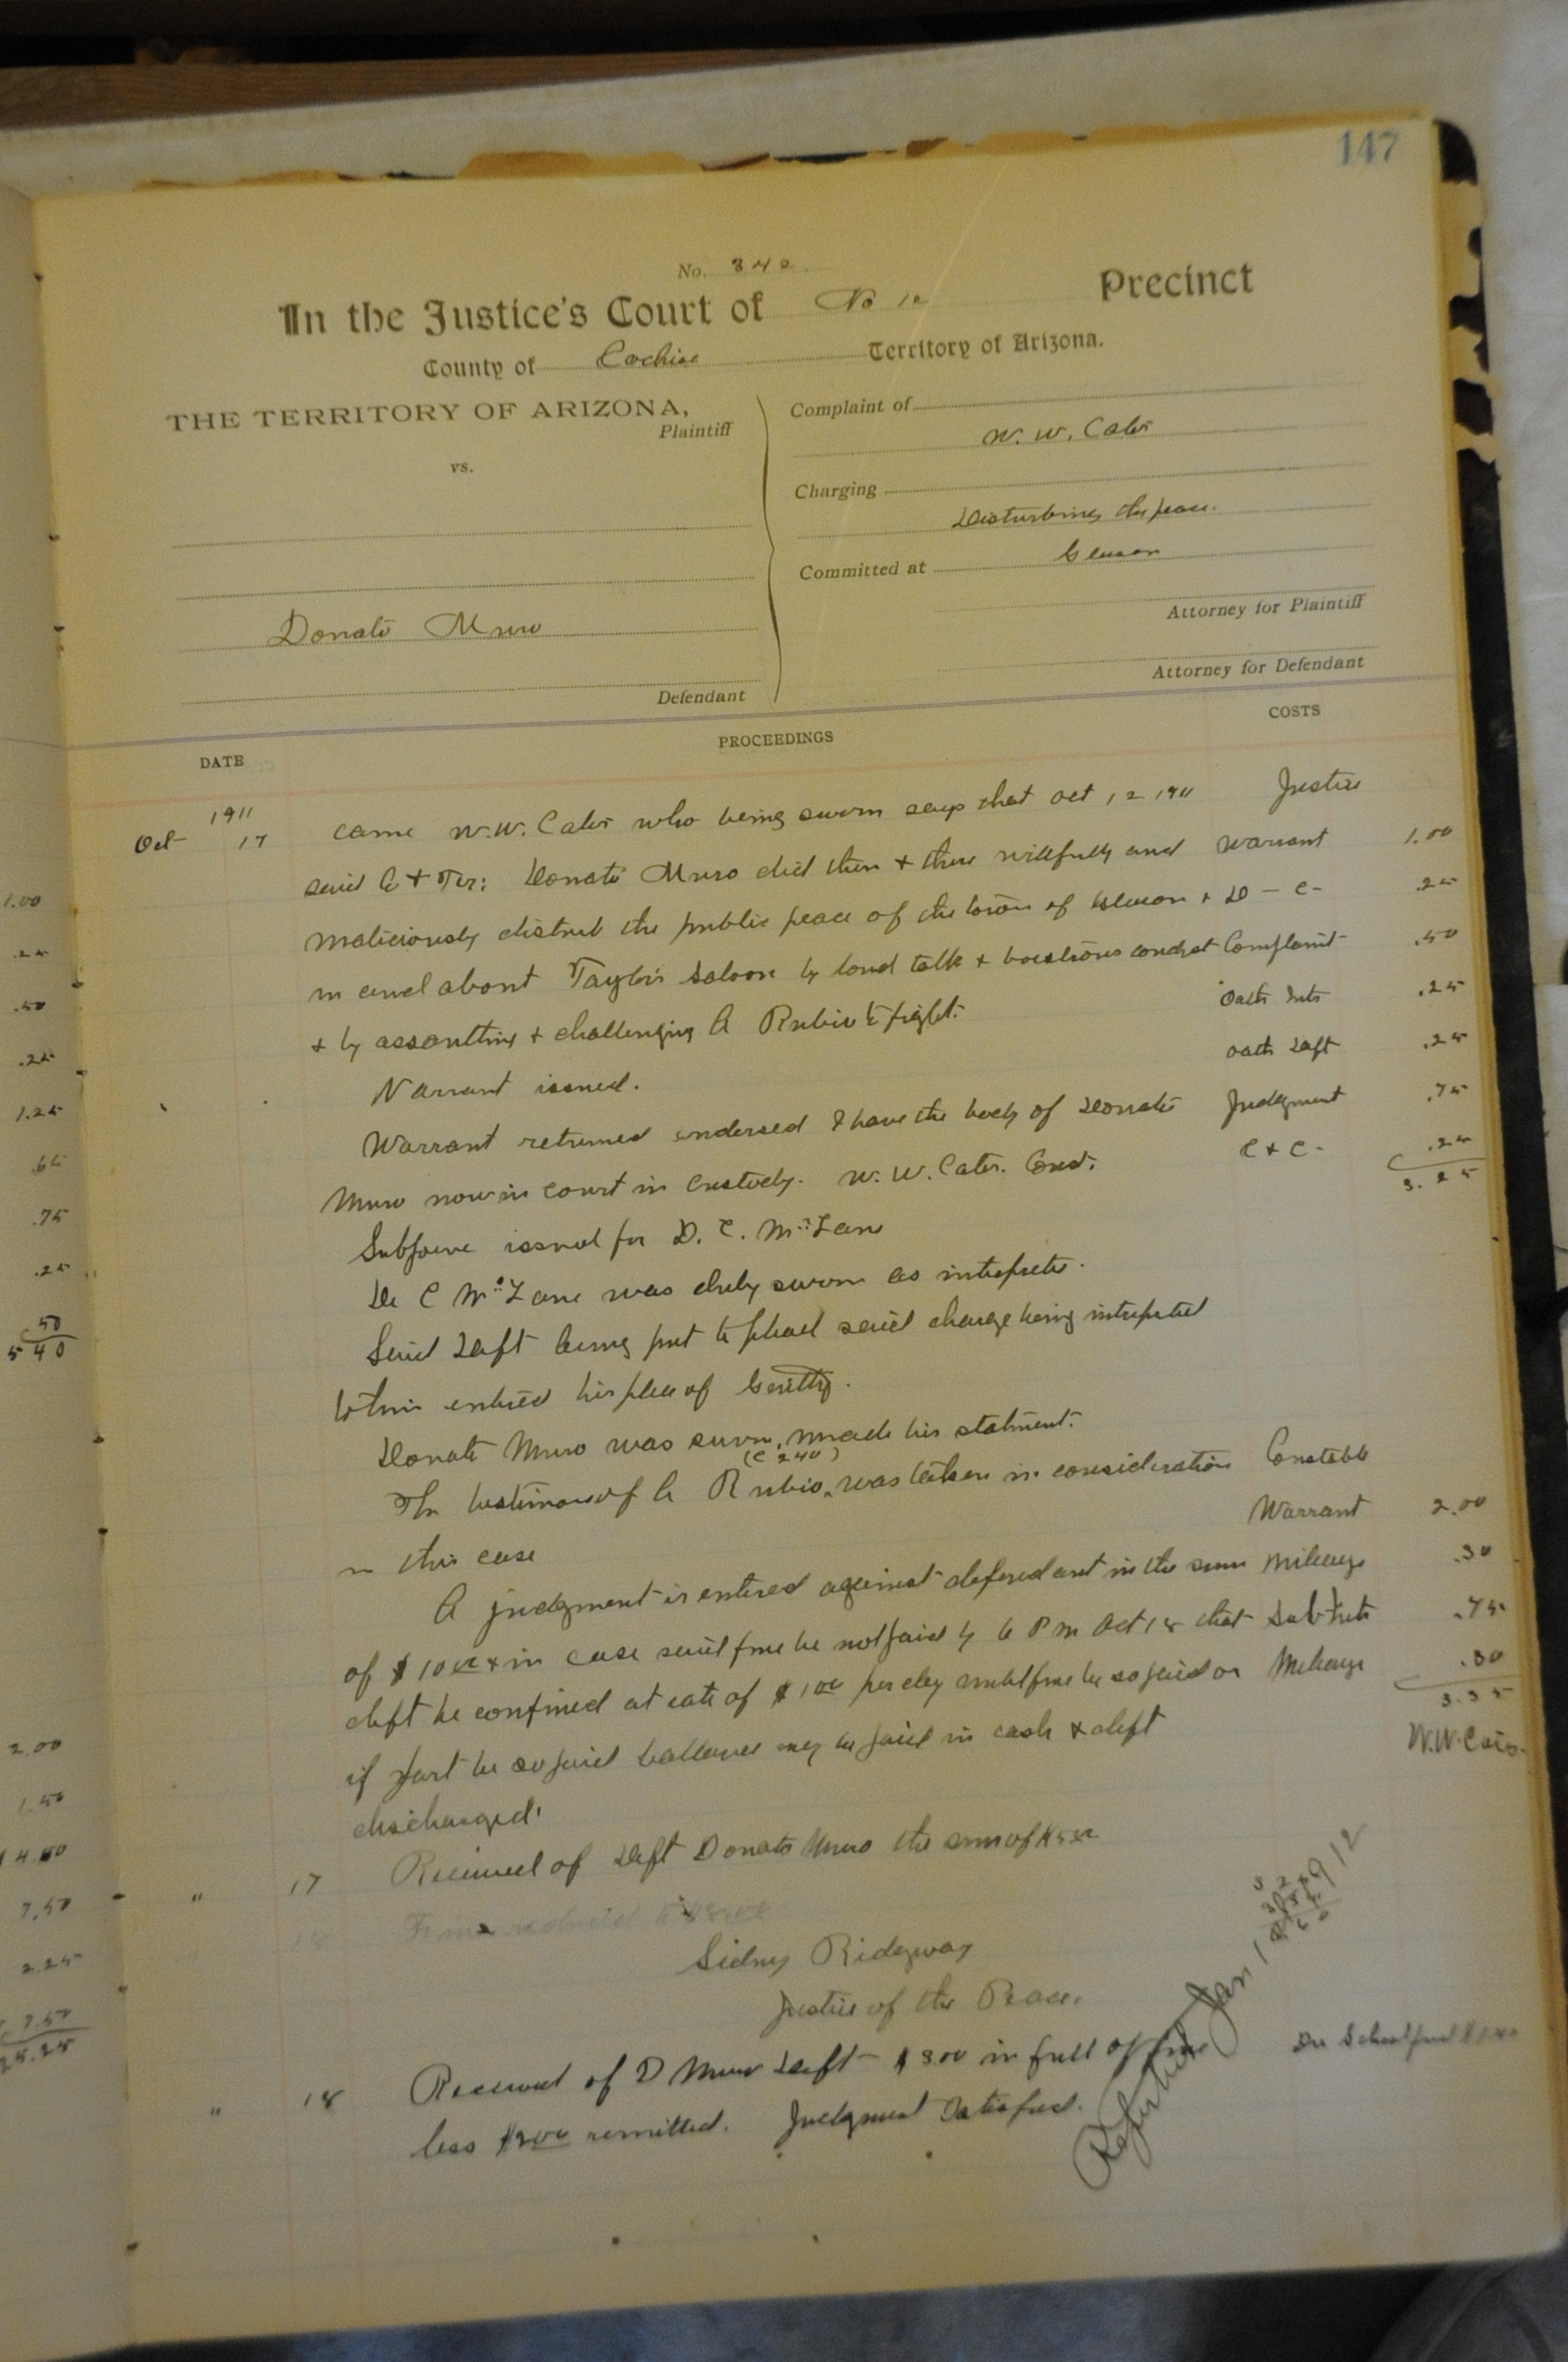 147
No. 342
In the Justice's Court of No 12 Precinct
County of Cochise Territory of Arizona.
THE TERRITORY OF ARIZONA,
Plaintiff
vs.
Donato Muro
Defendant
Complaint of
W. W. Cates
Charging
Disturbing the peace.
Committed at Gleason
Attorney for Plaintiff
Attorney for Defendant
DATE PROCEEDINGS COSTS
1911
Oct 17 Came W. W. Cates who being sworn says that Oct 12 1911 Justice
said C + Ter: Donato Muro did then + there willfully and Warrant 1.00
maliciously distrub the public peace of the town of Gleason + D - C - .25
in and about Taylor's Saloon by loud talk + boistrous conduct Complaint .50
+ by assaulting + challenging A Rubio to fight. Oath Intr .25
Warrant issued. Oath Deft .25
Warrant returned endorsed I have the body of Donato Judgment .75
Muro now in court in custody. W. W. Cates. Const. C + C - .25
3.25
Subpoene issued for D. C. McLane
De C McLane was duly sworn as intrepreter.
Said Deft being put to plead said charge being intrepreted
to him entered his plea of Guilty.
Donato Muro was sworn, made his statment.
(C 240)
The testimony of A Rubio was taken in consideration Constable
in this case Warrant 2.00
A judgment is entered against defendant in the sum Mileage .30
of $10 00 + in case said fine be not paid by 6 P m Oct 18 that Sub Intr .75
deft be confined at rate of $1 00 per day until fine be so paid or Mileage .30
3.35
if part be so paid ballance may be paid in cash + deft W. W. Cates.
discharged.
" 17 Received of Deft Donato Muro the sum of $5 00
18 Fine reduced to $8 00
Sidney Ridgway
Justice of the Peace.
" 18 Received of D Muro Deft - $3.00 in full of fine
less $2 00 remitted. Judgment Satisfied.
Jan 1 1912
1.00
.25
.50
.25
1.25
.65
.75
.25
.50
5 40
2.00
1.50
14.50
7.50
2.25
7.50
25.25